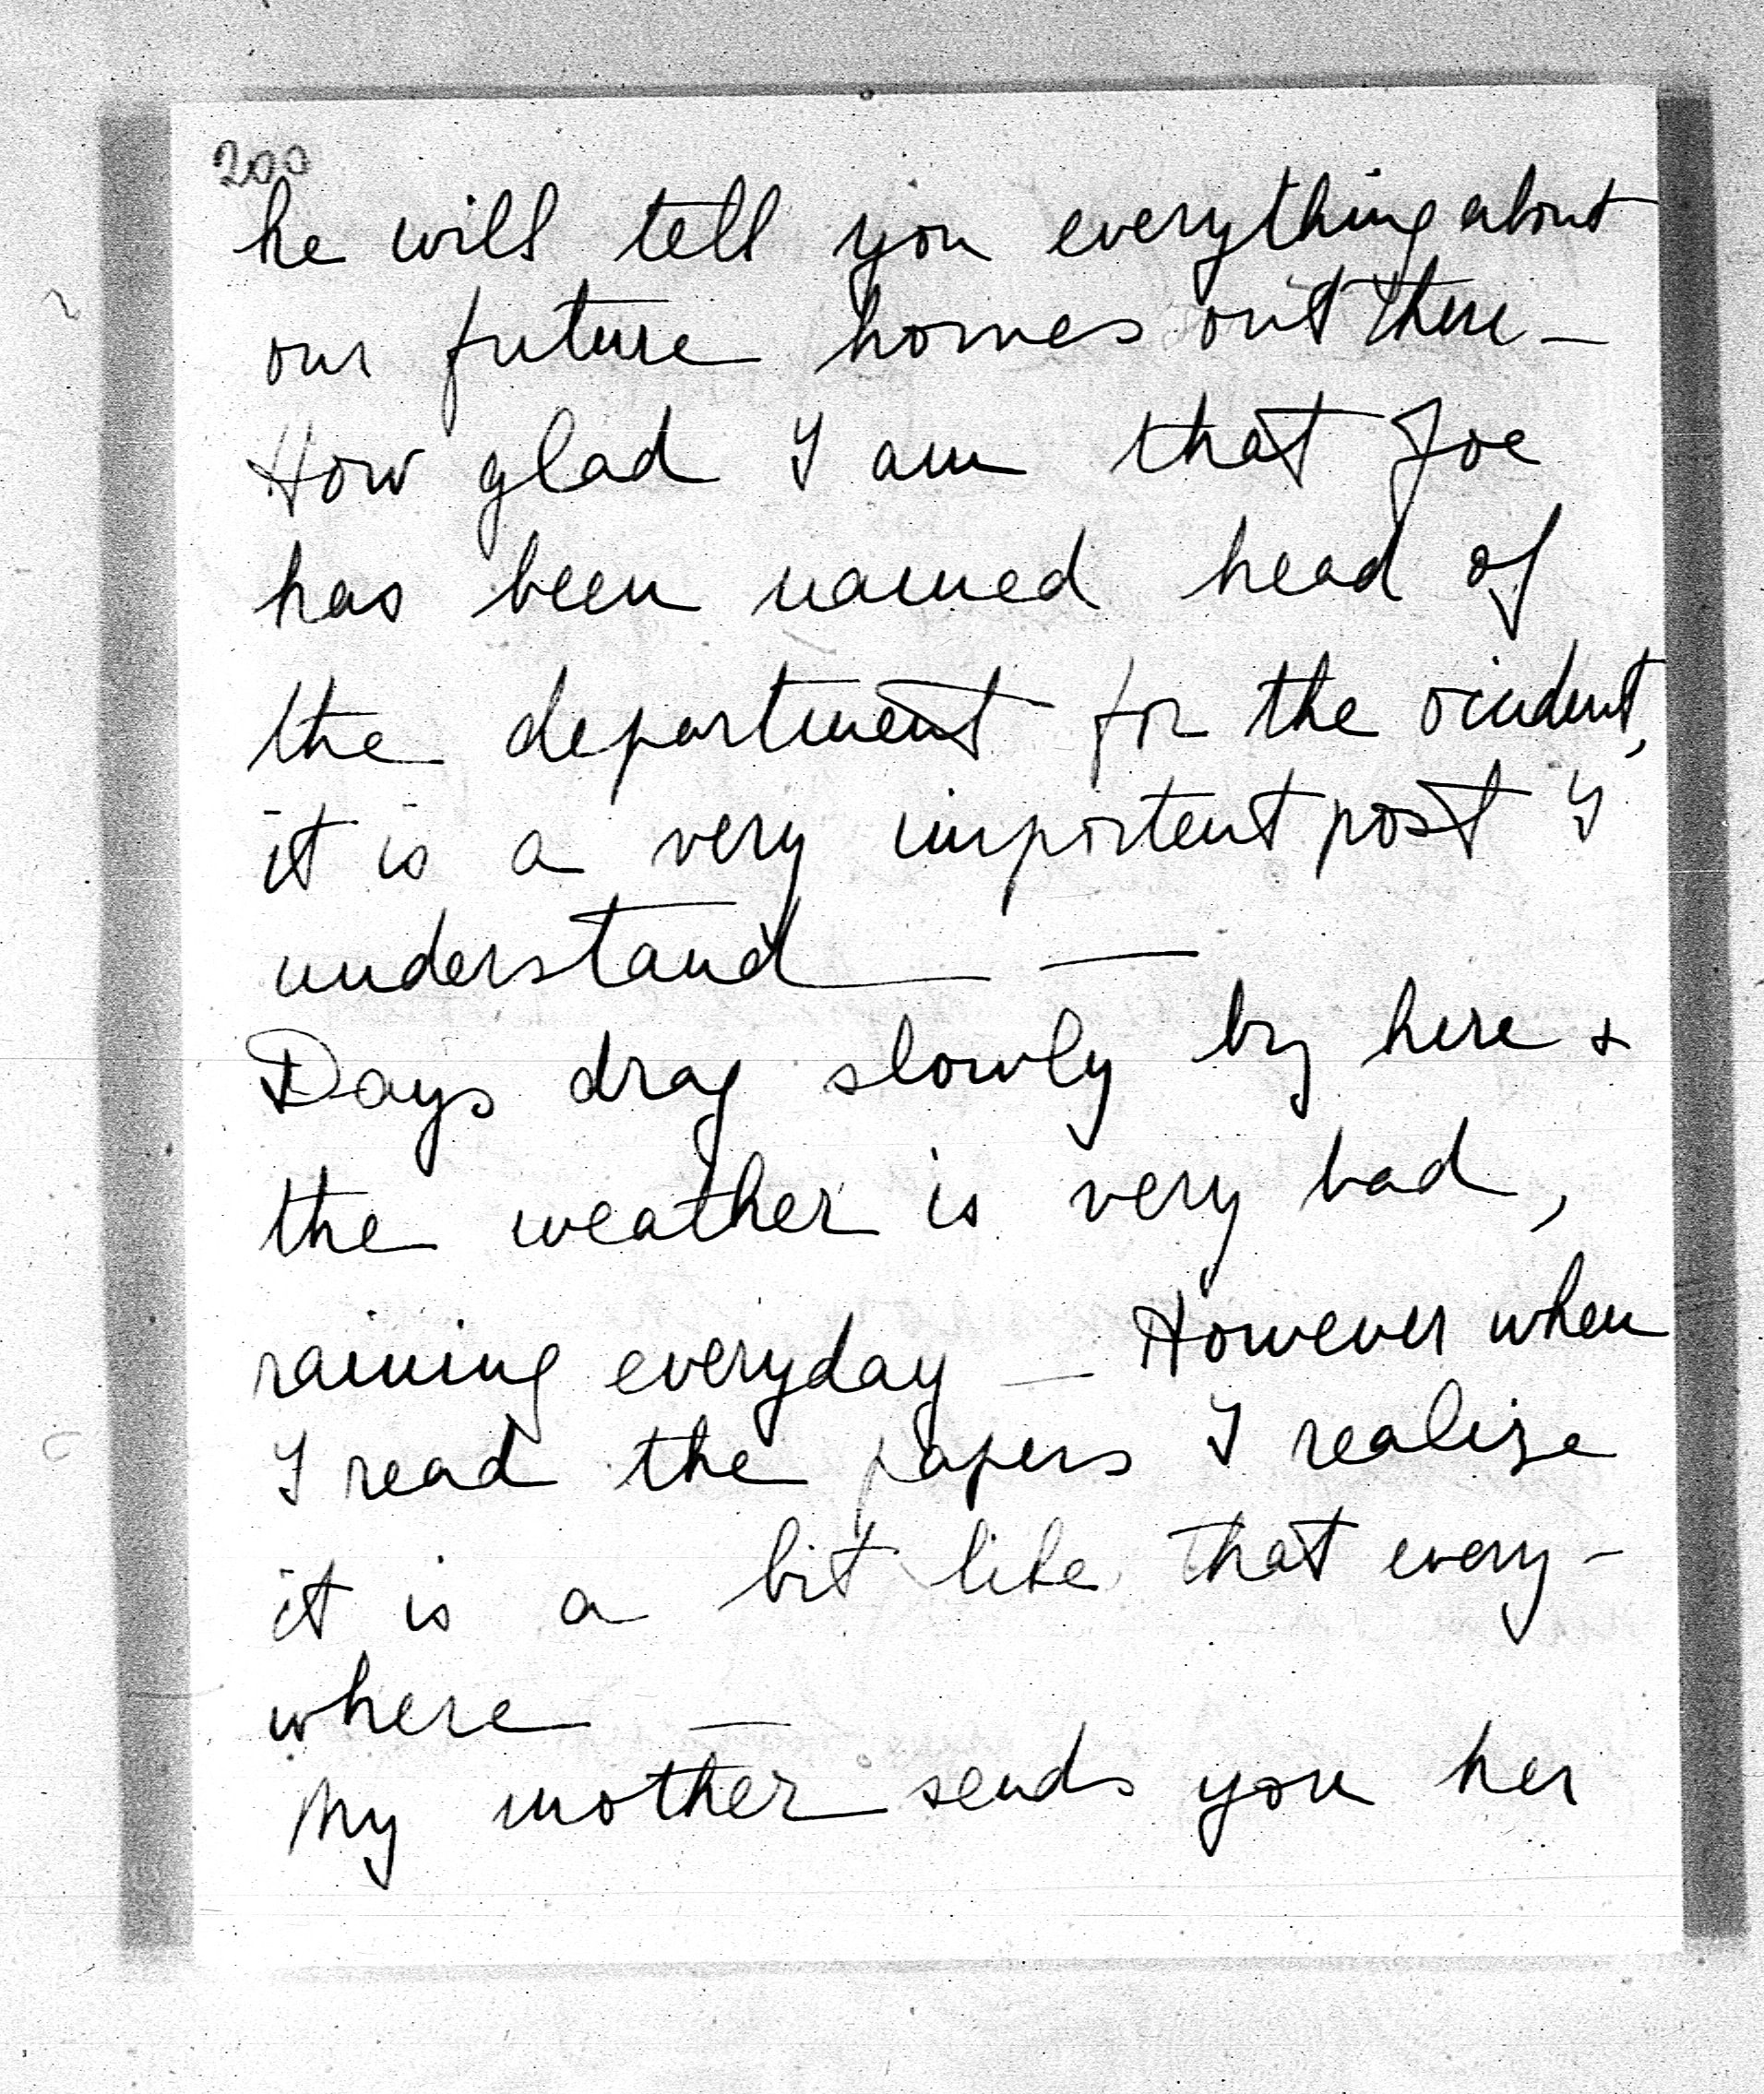 200
he will tell you everything about
our future homes out there —
How glad I am that Joe
has been named head of
the department for the occident,
it is a very important post I
understand — —
Days drag slowly by here +
the weather is very bad,
raining everyday — However when
I read the papers I realize
it is a bit like that every-
where —
My mother sends you her